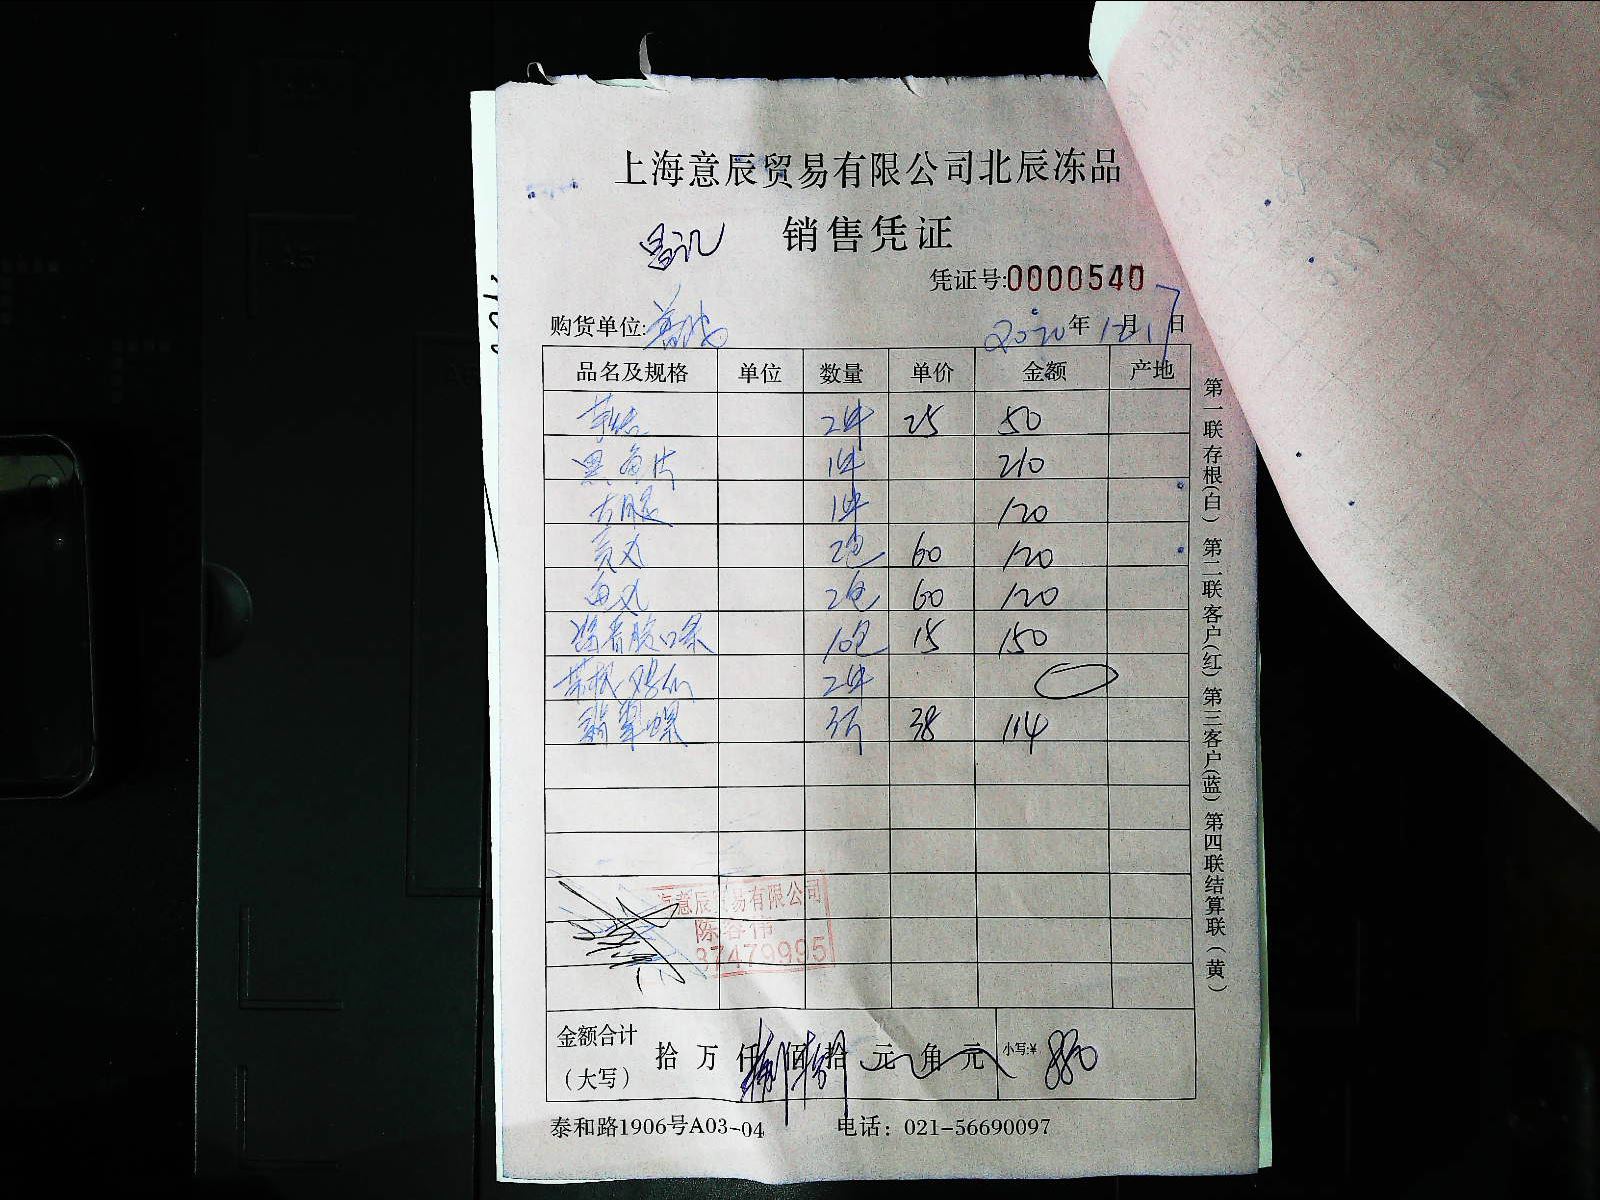 上海意辰贸易有限公司北辰冻品
销售凭证
凭证号:0000540
购货单位: 2020年12月17日
品名及规格 单位 数量 单价 金额 产地
2件 25 50
黑鱼片 1件 210
方腿 1件 120
贡丸 2包 60 120
鱼丸 2包 60 120
10包 15 150
2件
翡翠螺 3斤 38 114
意辰贸易有限公司
陈容伟
37479995
金额合计
(大写) 拾 万 仟 捌 佰 捌 拾 元 角 元 小写:¥ 880
泰和路1906号A03-04 电话：021-56690097
第一联存根(白) 第二联客户(红) 第三客户(蓝) 第四联结算联(黄)